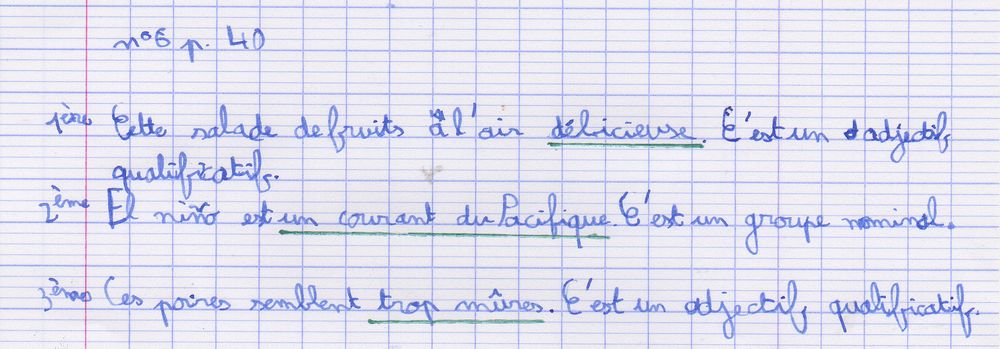 n°6 p. 40
1ère Cette salade de fruits à l'air délicieuse. C'est un adjectif
qualificatif.
2ème El niño est un courant du Pacifique. C'est un groupe nominal.
3ème Ces poires semblent trop mûres. C'est un adjectif qualificatif.